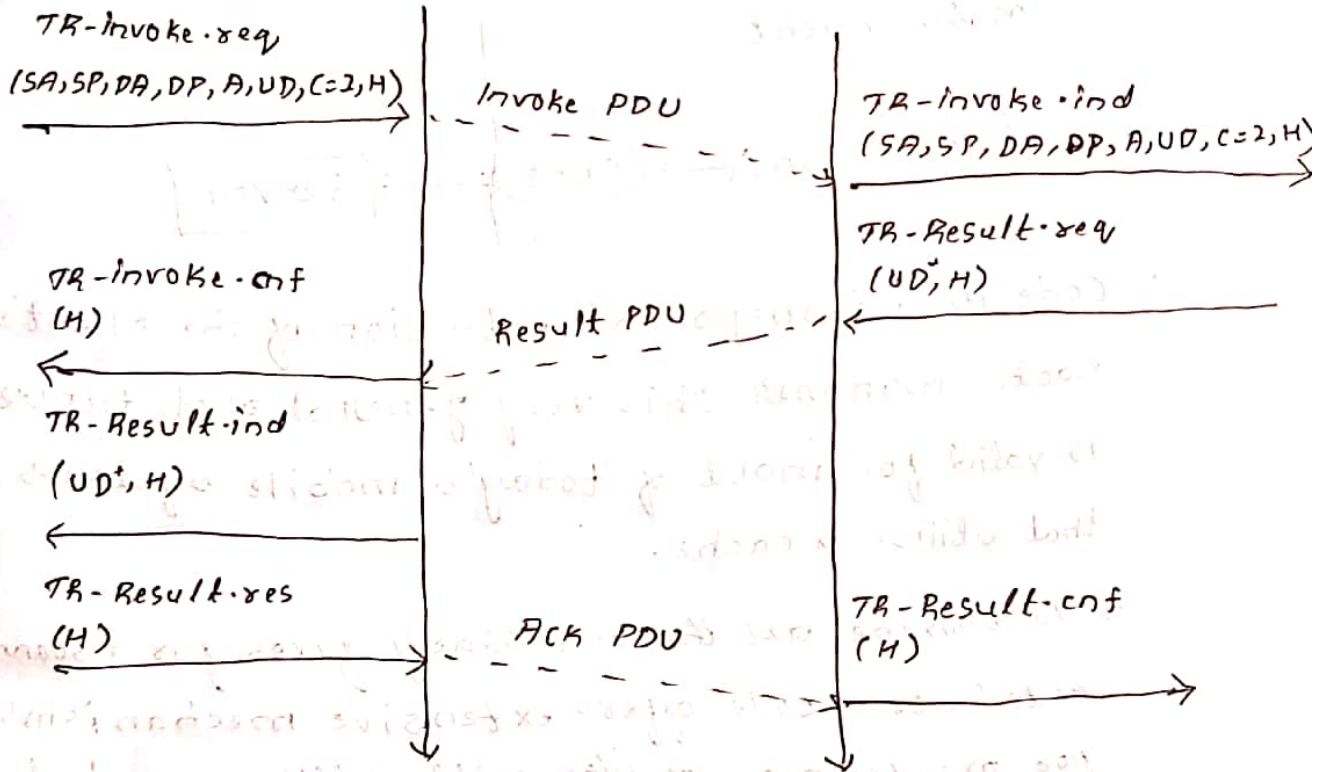 TR-invoke.req
(SA,SP,DA,DP,A,UD,C=2,H)
Invoke PDU
TR-invoke.ind
(SA,SP,DA,DP,A,UD,C=2,H)
TR-Result.req
(UD*,H)
TR-invoke.cnf
(H)
Result PDU
TR-Result.ind
(UD*,H)
TR-Result.res
(H)
Ack PDU
TR-Result.cnf
(H)